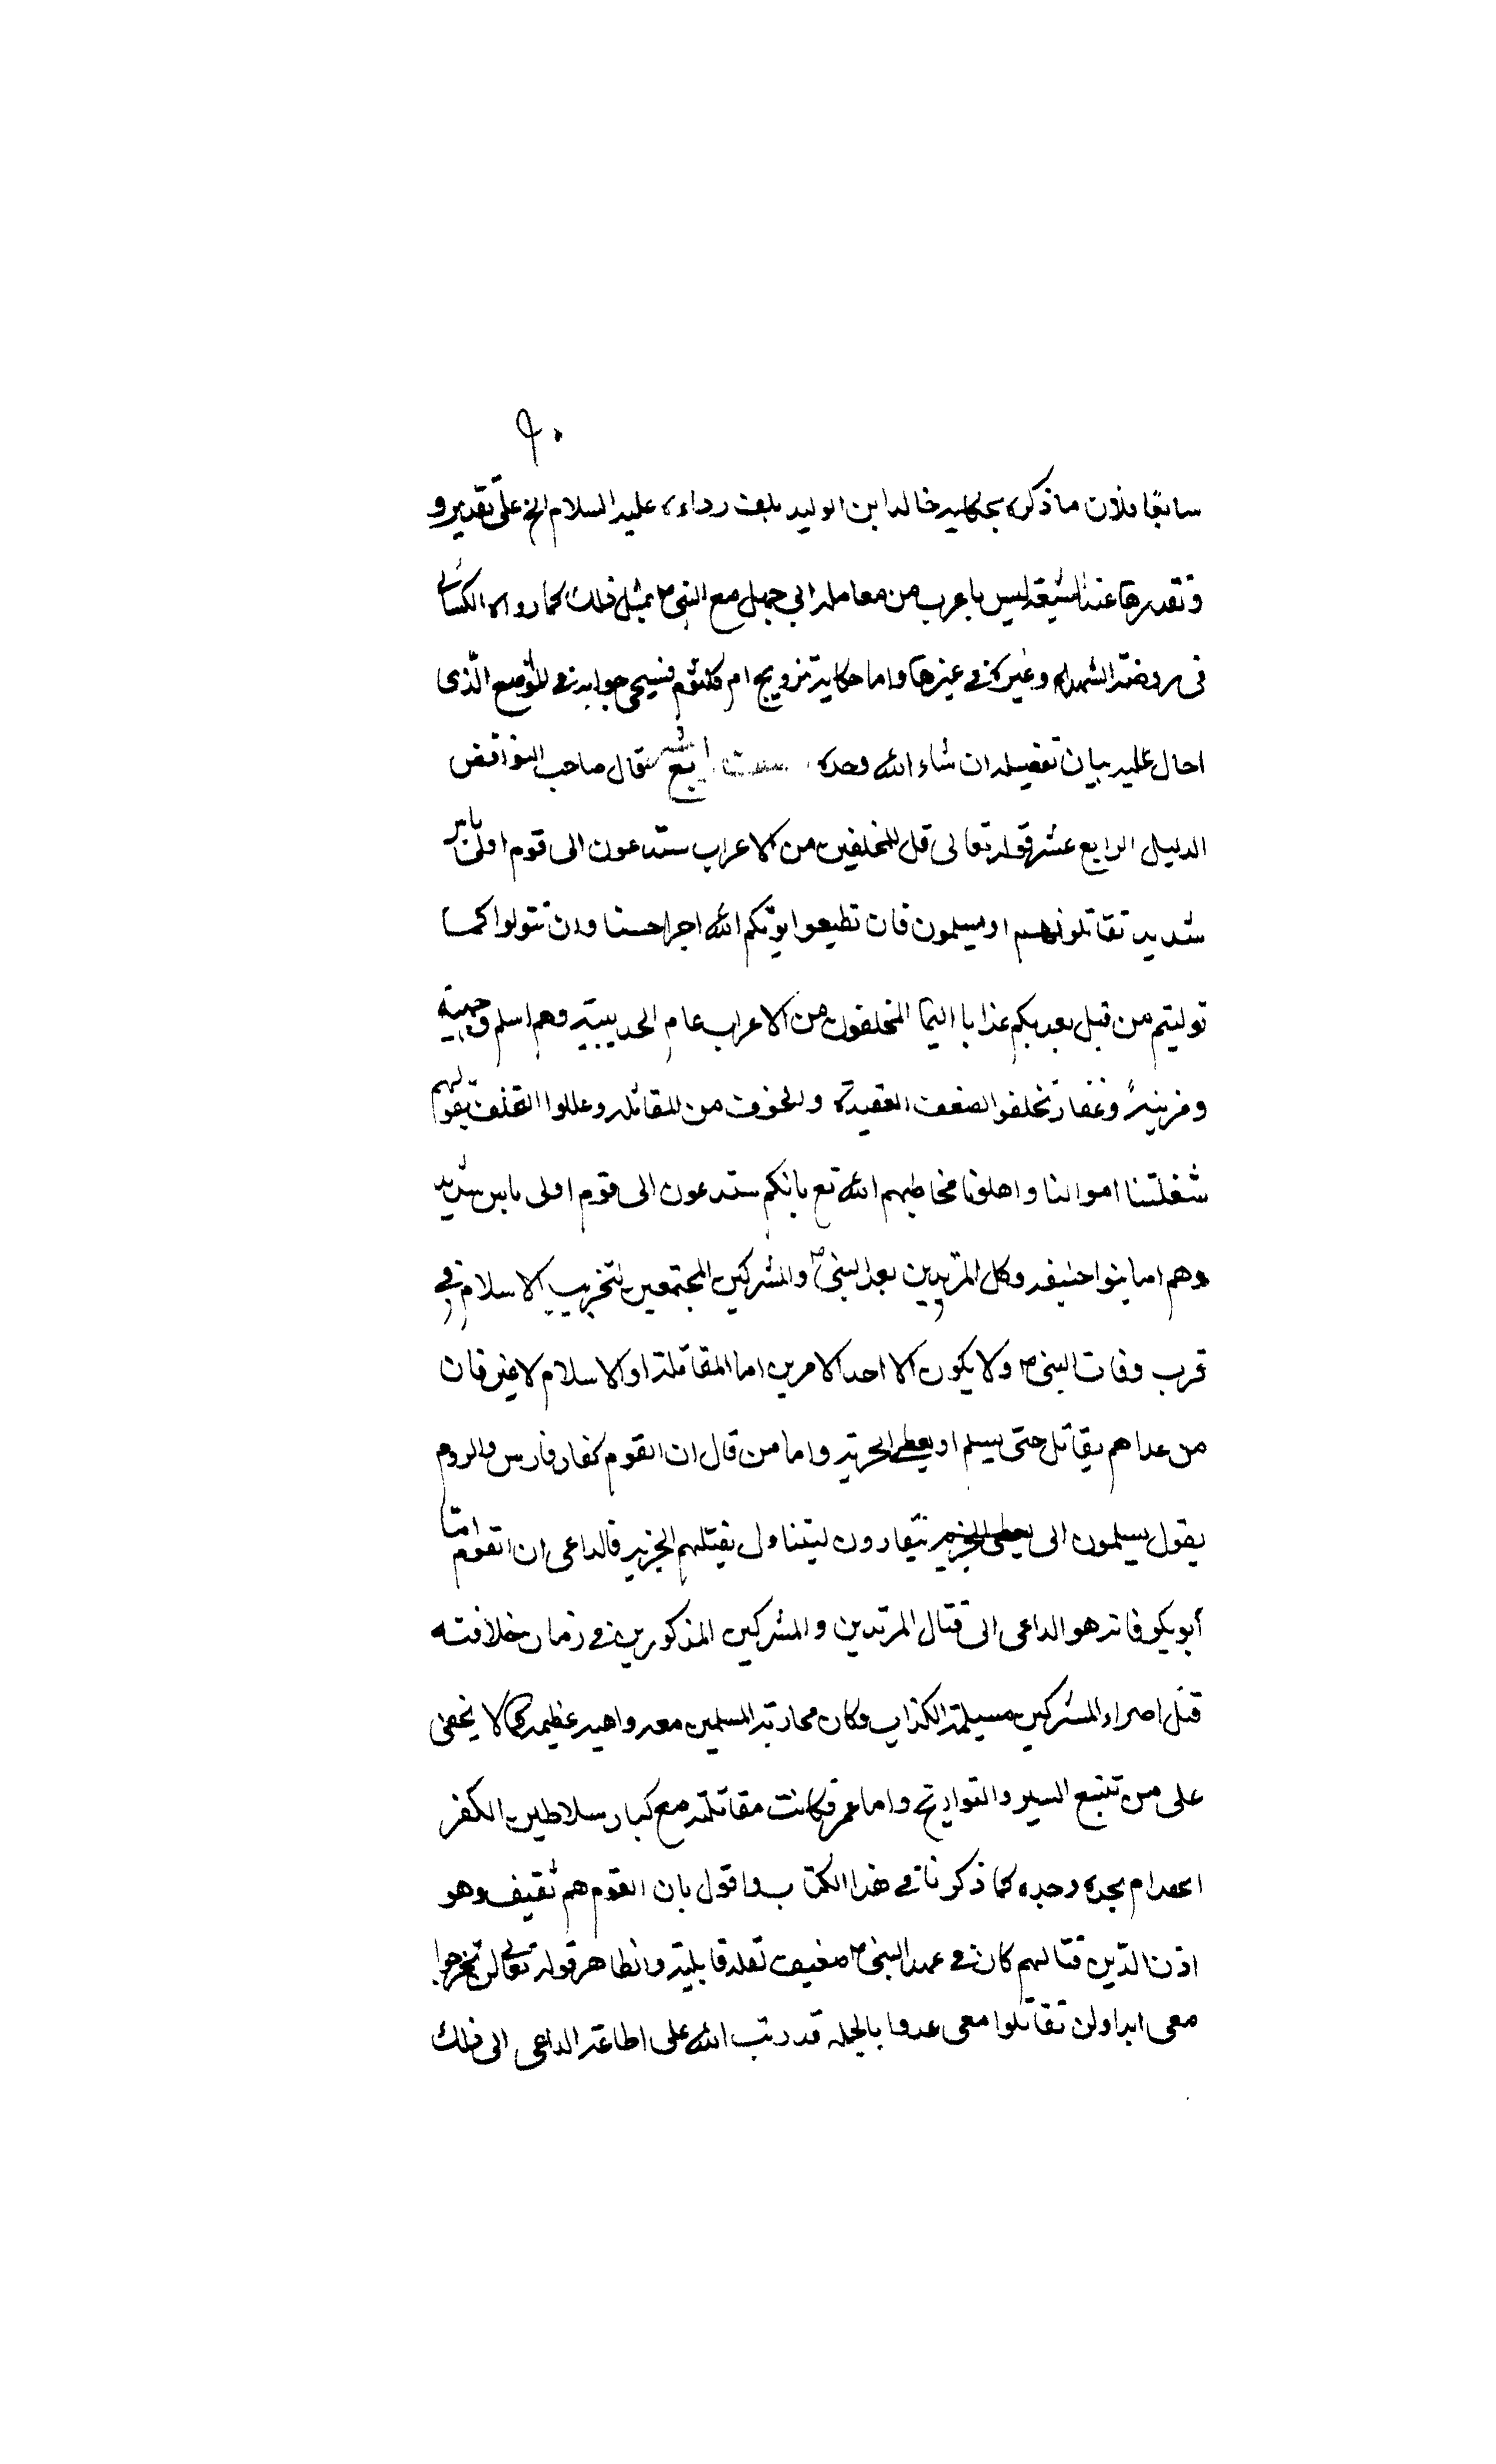 ٩٠
سابقا فلان ما ذكره بحكاية خالد ابن الوليد بلف رداءه عليه السلام الخ على تقدير و
وتقديرها عند الشيعة ليس باعرب من معاملة ابي جهل مع النبي ص بمثل ذلك كما رواه الكشاني
في روضة الشهداء وغيره في غيرها واما حكاية تزويج ام كلثوم فسيجئ جوابه في الموضع الذى
احال عليه بيان تفصيله ان شاء الله وحده قال صاحب النواقض
الدليل الرابع عشر قوله تعالى قل للمخلفين من الاعراب ستدعون الى قوم اولى باس
شديد تقاتلونهم او يسلمون فان تطيعوا يوتكم الله اجرا حسنا وان تتولوا كما
توليتم من قبل يعذبكم عذابا اليما المخلفون من الاعراب عام الحديبية وهم اسلم وجهينة
ومزينة وغفار تخلفوا لضعف العقيدة والخوف من المقاتلة وعللوا التخلف بقولهم
شغلتنا اموالنا واهلونا فخاطبهم الله تع بانكم ستدعون الى قوم اولى باس شديد
وهم اما بنوا حنيفه وكل المرتدين بعد النبي ص والمشركين المجتمعين لتخريب الاسلام في
قرب وفات النبي ص ولا يكون الا احد الامرين اما المقاتلة او الاسلام لا غير فان
من عداهم يقاتل حتى يسلم او يعطى الجزية واما من قال ان القوم كفار فارس والروم
يقول يسلمون اى ينقادون ليتناول تقبلهم الجزية فالداعى ان القوم اما
أبو بكر فانه هو الداعى الى قتال المرتدين والمشركين المذكورين في زمان خلافته
قتل امراء المشركين مسيلمة الكذاب وكان محاربة المسلمين معه واهية عظيمة كما لا يخفى
على من تتبع السير والتواريخ واما عمر فكانت مقاتلته مع كبار سلاطين الكفر
بجده وجده كما ذكرنا في هذا الكتاب واقول بان القوم هم ثقيف وهو
اذن الذين قتالهم كان في عهد النبي ص ضعيف لقلة قابليته وانظاهر قوله تعالى لن تخرجوا
معى ابدا ولن تقاتلوا معى عدوا بالجملة قد رتب الله على اطاعة الداعى الى ذلك